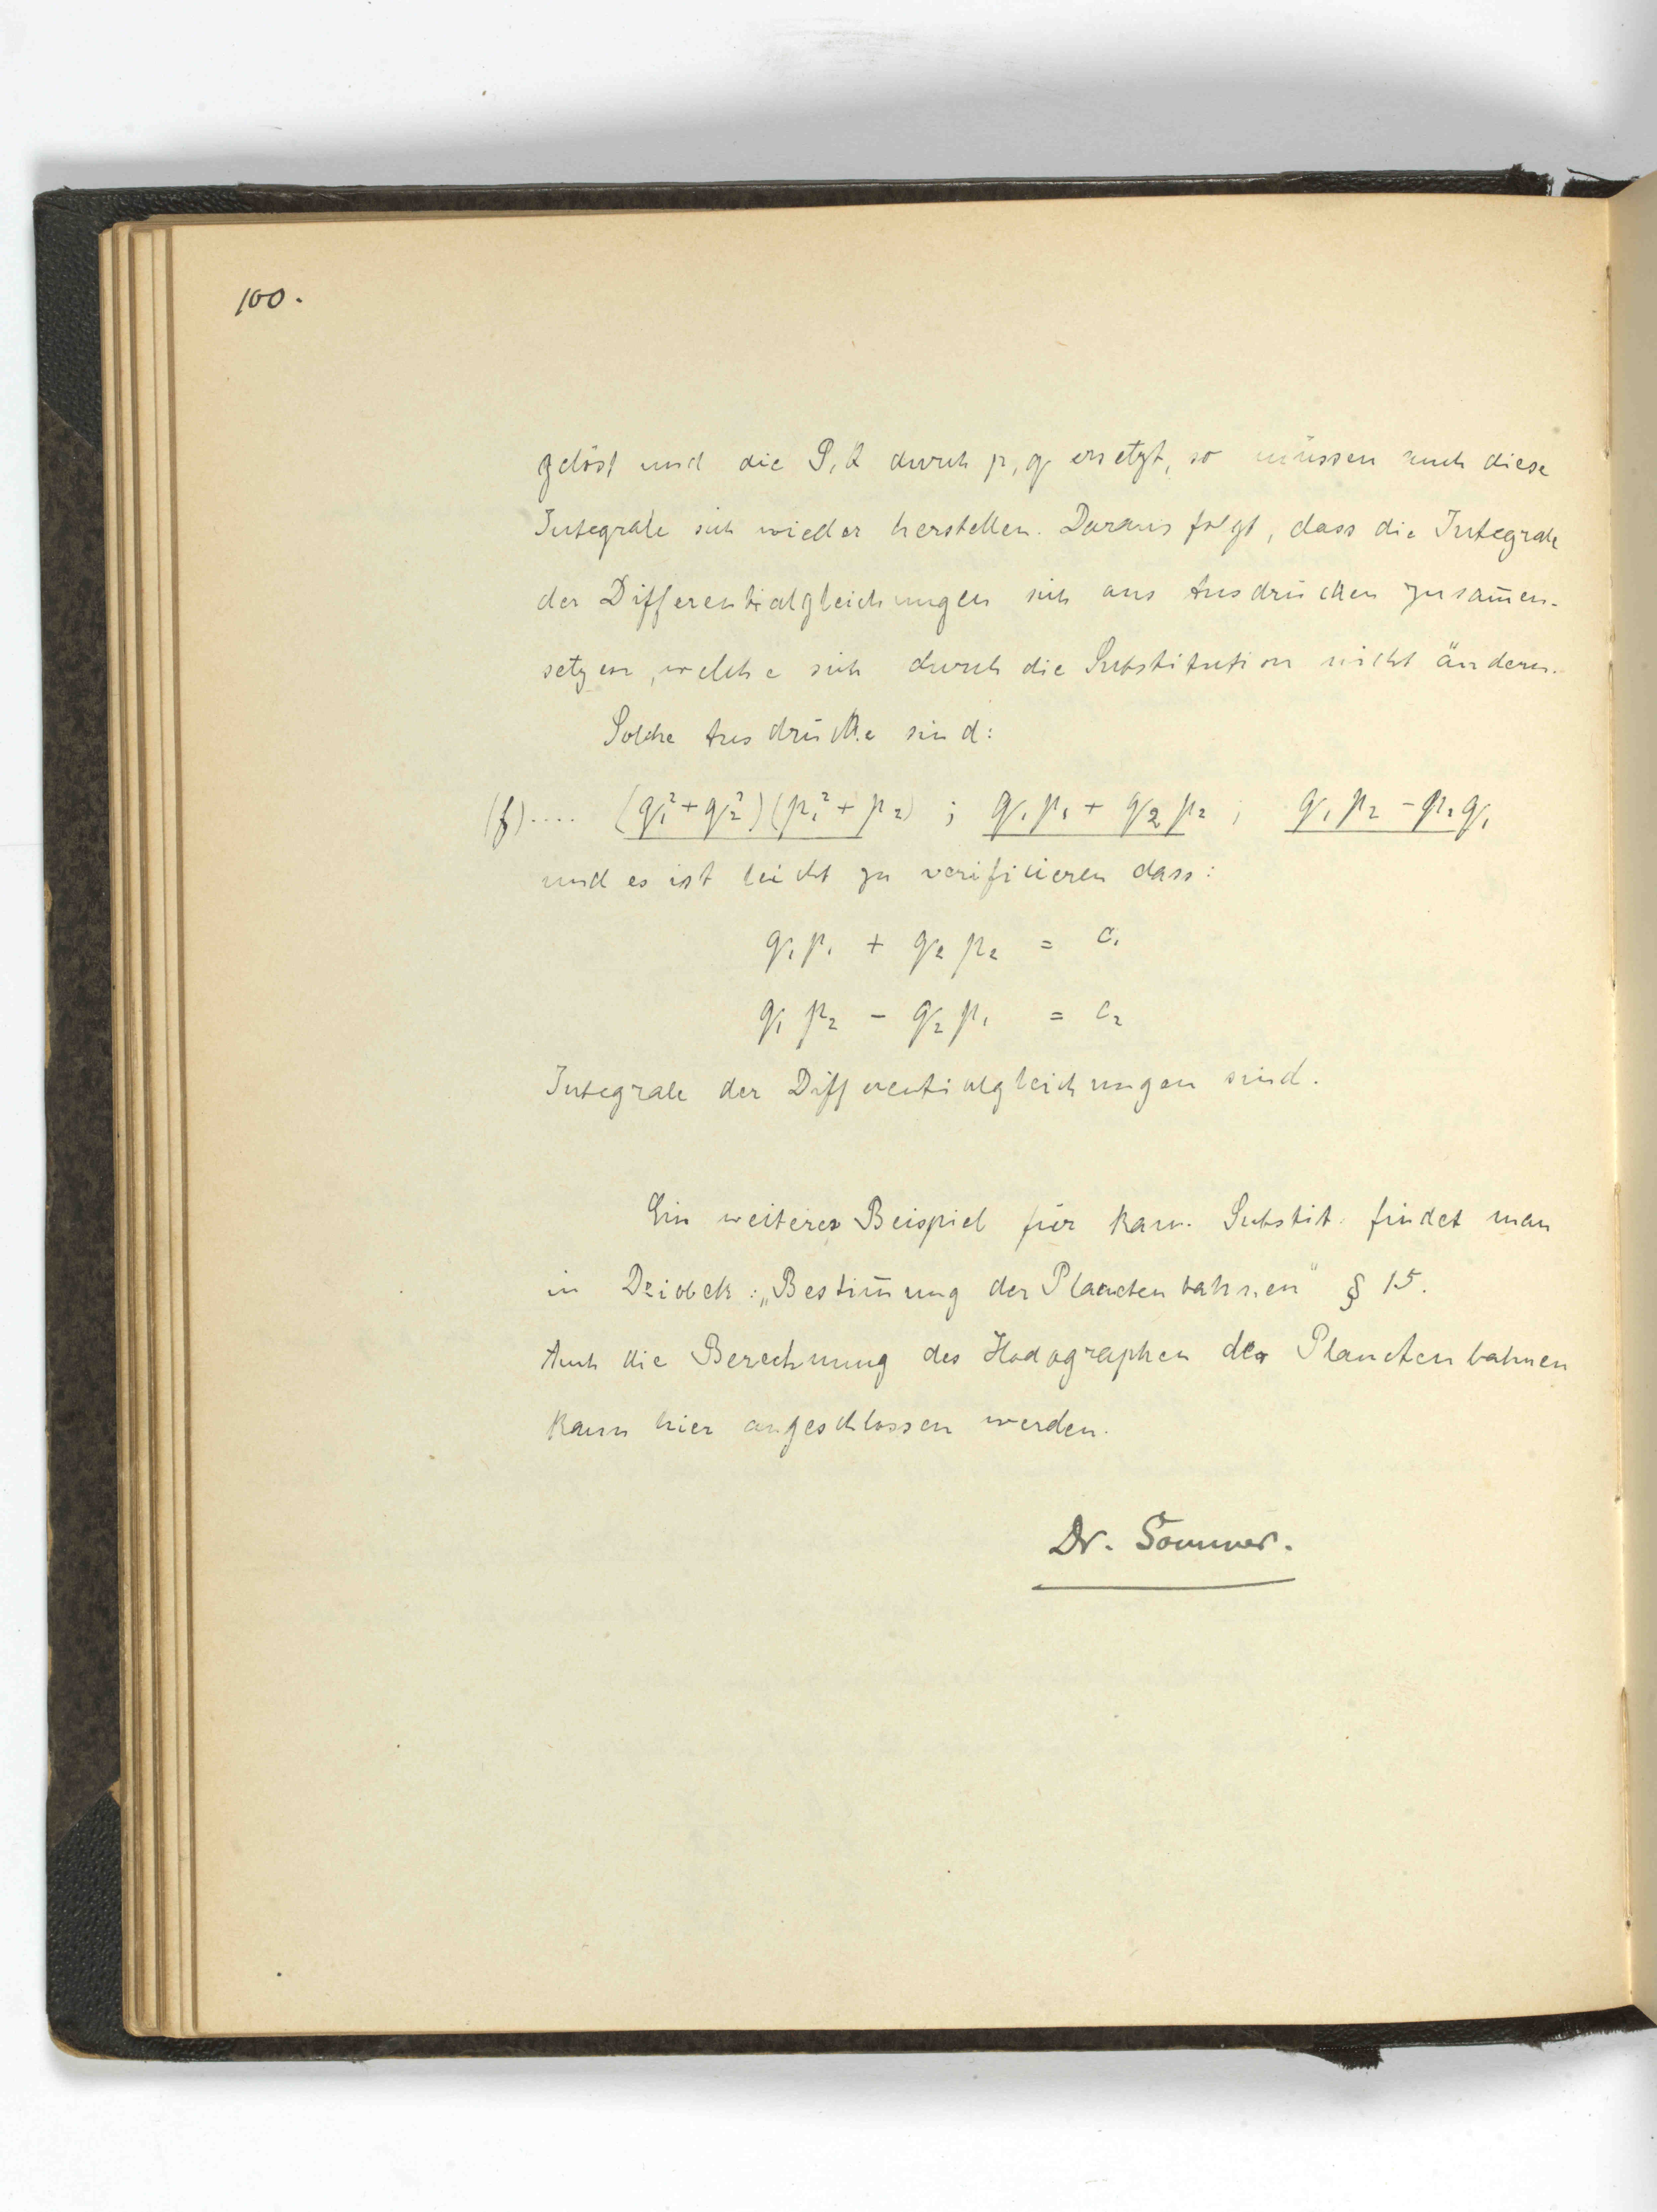 100.
gelöst und die P, Q durch p, q ersetzt, so müssen auch diese
Integrale sich wieder herstellen. Daraus folgt, dass die Integrale
der Differentialgleichungen sich aus Ausdrücken zusam̄en-
setzen, welche sich durch die Substitution nicht ändern.
Solche Ausdrücke sind:
(f).... (q₁²+q₂²)(p₁²+p₂) ; q₁p₁ + q₂p₂ ; q₁p₂ - p₂q₁
und es ist leicht zu verificieren dass:
q₁p₁ + q₂p₂ = c₁
q₁p₂ - q₂p₁ = c₂
Integrale der Differentialgleichungen sind.
Ein weiteres Beispiel für kan. Substit. findet man
in Dziobek: „Bestim̄ung der Planetenbahnen" § 15.
Auch die Berechnung des Hodographen der Planetenbahnen
kann hier angeschlossen werden.
Dr. Sommer.